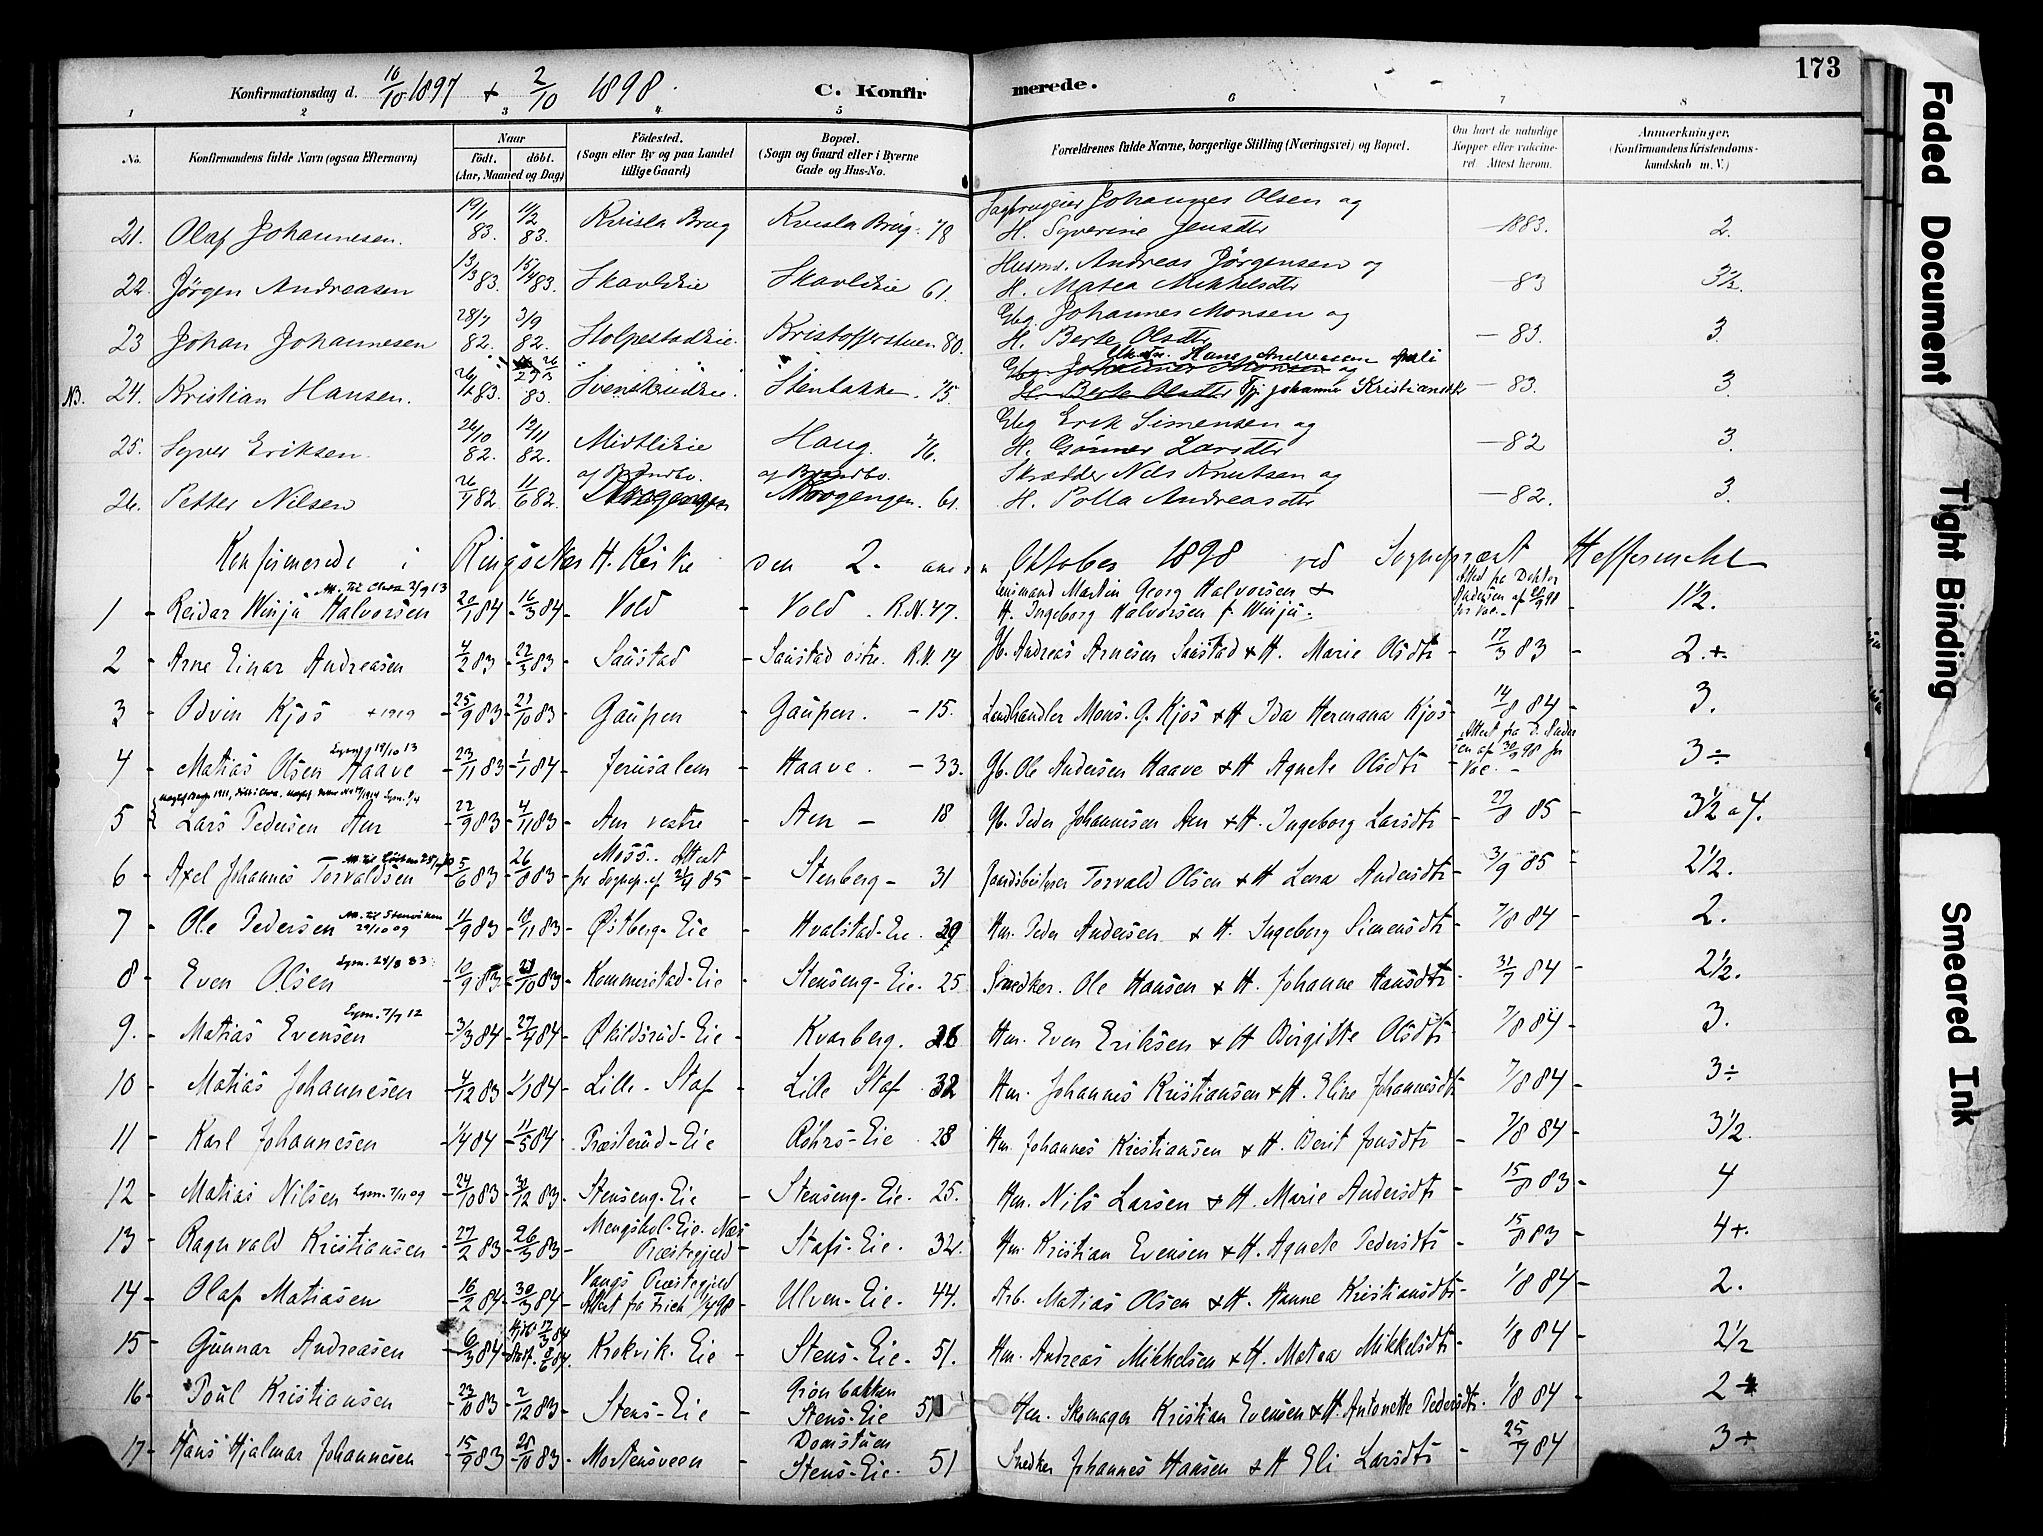 173
Konfirmationsdag d. 10/10 1897 + 2/10 1898.
C. Konfir merede.
1 2 3 4 5 6 7 8
No. Konfirmandens fulde Navn (ogsaa Efternavn) Naar født. døbt. (Aar, Maaned og Dag) Födested. (Sogn eller By og paa Landet tillige Gaard) Bopæl. (Sogn og Gaard eller i Byerne Gade og Hus-No. Forældrenes fulde Navne, borgerlige Stilling (Næringsvei) og Bopæl. Om havt de naturlige Kopper eller vaccineret. Attest herom. Anmærkninger. (Konfirmandens Kristendomskundskab m. V.)
21. Olaf Johannesen. 19/1 83. 11/2 83. Kvisla Brug Kvisla Brug. 78 Sagbrugeier Johannes Olsen og H. Syverine Jensdtr — 1883. 2.
22. Jørgen Andreasen 13/3 83. 15/4 83. Skavlikie Skavlikie 61. Husmd. Andreas Jørgensen og H. Matea Mikkelsdtr — 83 3½.
23 Johan Johannesen 28/7 82. 3/9 82. Stolpestadeie. Kristofferstuen 80. Gbg Johannes Monsen og H. Berte Olsdtr — 83. 3.
NB. 24. Kristian Hansen. 83. 83. Svenskrudeie. Stenbakken. 75. Hans Andreasen Johanne Kristiansdtr — 83. 3.
25. Syver Eriksen. 26/10 82. 19/11 82. Midtlikie Haug. 76. Gbg Erik Simensen og H. Gunner Larsdtr — 82 3.
26. Petter Nilsen 26/4 82 11/6 82. 61. Skrædder Nils Knutsen og H. Polla Andreasdtr — 82. 3.
Konfirmerede i Ringsaker H. Kirke den 2. Oktober 1898 ved Sogneprest Heffermehl
1 - Reidar Winju Halvorsen 20/1 84 - 16/3 84 - Vold - Vold. R.N. 47. Lensmand Martin Georg Halvorsen + H. Ingeborg Halvorsen f. Winju. Attest fra Doktor 1½.
2 - Arne Einar Andreasen 4/2 83 - 22/3 83 - Saustad - Saustad østre. R.N. 14 Gb. Andreas Arnesen Saustad + H. Marie Olsdtr - 17/3 83 - 2.+
3 - Odvin Kjos + 1919 - 25/9 83 - 22/10 83 - Gaupen - Gaupen. - 15. Landhandler Mons. G. Kjos + H Ida Hermana Kjos - 14/8 84 - 3.
4 - Matias Olsen Haave - 23/11 83 - 1/1 84 - Jerusalem - Haave. - 33. Gb. Ole Andersen Haave + H Agnete Olsdtr - 3 ÷
5 Lars Pedersen Aen - 22/9 83 - 4/11 83 - Aen vestre - Aen - 18 Gb. Peder Johannesen Aen + H. Ingeborg Larsdtr - 27/8 85 - 3½ a 4.
6 - Axel Johannes Torvaldsen - 5/6 83 - 26/8 83 - Moss. Attest fr. Sognep. af 2/9 85 - Stenberg - 31 Gaardsbestyrer Torvald Olsen + H Lena Andersdtr - 3/9 85 - 2½.
7 - Ole Pedersen - 11/9 83 - 18/11 83 - Østberg-Eie - Hvalstad-Eie. 29 Hm. Peder Andersen + H. Ingeborg Simensdtr - 7/8 84 - 2.
8 - Even Olsen - 10/9 83 - 28/10 83 - Kommerstad-Eie - Stenseng-Eie. 25 Snedker. Ole Hansen + H. Johanne Hansdtr - 31/7 84 - 2½.
9. - Matias Evensen - 3/3 84 - 27/4 84 - Økildsrud-Eie - Kvarberg. 26 Hm. Even Eriksen + H Birgitte Olsdtr - 7/8 84 - 3.
10 - Matias Johannesen - 4/12 83 - 1/1 84 - Lille-Staf - Lille Staf 32 Hm. Johannes Kristiansen + H. Eline Johannesdtr - 7/8 84 - 3 ÷
11 - Karl Johannesen - 1/4 84 - 11/5 84 - Præsterud-Eie - Røhrs-Eie 28 Hm. Johannes Kristiansen + H. Berit Jonsdtr - 7/8 84 - 3½.
12 - Matias Nilsen - 24/10 83 - 30/12 83 - Stenseng-Eie - Stenseng-Eie. 25. Hm. Nils Larsen + H. Marie Andersdtr - 15/8 83 - 4
13 - Ragnvald Kristiansen - 27/2 83 - 26/3 83 - Mengshol-Eie. Næs Præstegjeld - Stafs-Eie. 32. Hm. Kristian Evensen + H. Agnete Pedersdtr - 15/8 83 - 4+.
14 - Olaf Matiasen - 16/2 84 - 30/3 84 - Vangs Præstegjeld Attest fra Frich 1/4 98 - Ulven-Eie. 44. Arb. Matias Olsen + H. Hanne Kristiansdtr - 1/8 84 - 2.
15 - Gunnar Andreasen - 6/3 84 - Hjd. 17/3 84 Stadf. 8/6 84. - Krekvik-Eie - Stens-Eie. 51. Hm. Andreas Mikkelsen + H. Matea Mikkelsdtr - 1/8 84 - 2½
16 - Poul Kristiansen - 23/10 83 - 2/12 83 - Stens-Eie - Grønbakken Stens-Eie 51 Hm. Skomager Kristian Evensen + H. Antonette Pedersdtr. 1/8 84 - 2
17 - Hans Hjalmar Johannesen - 15/9 83 - 28/10 83 - Mortensveen - Domstuen Stens-Eie. 51 Snedker Johannes Hansen + H Eli Larsdtr - 25/9 84 3+
Faded Document
Tight Binding
Smeared Ink